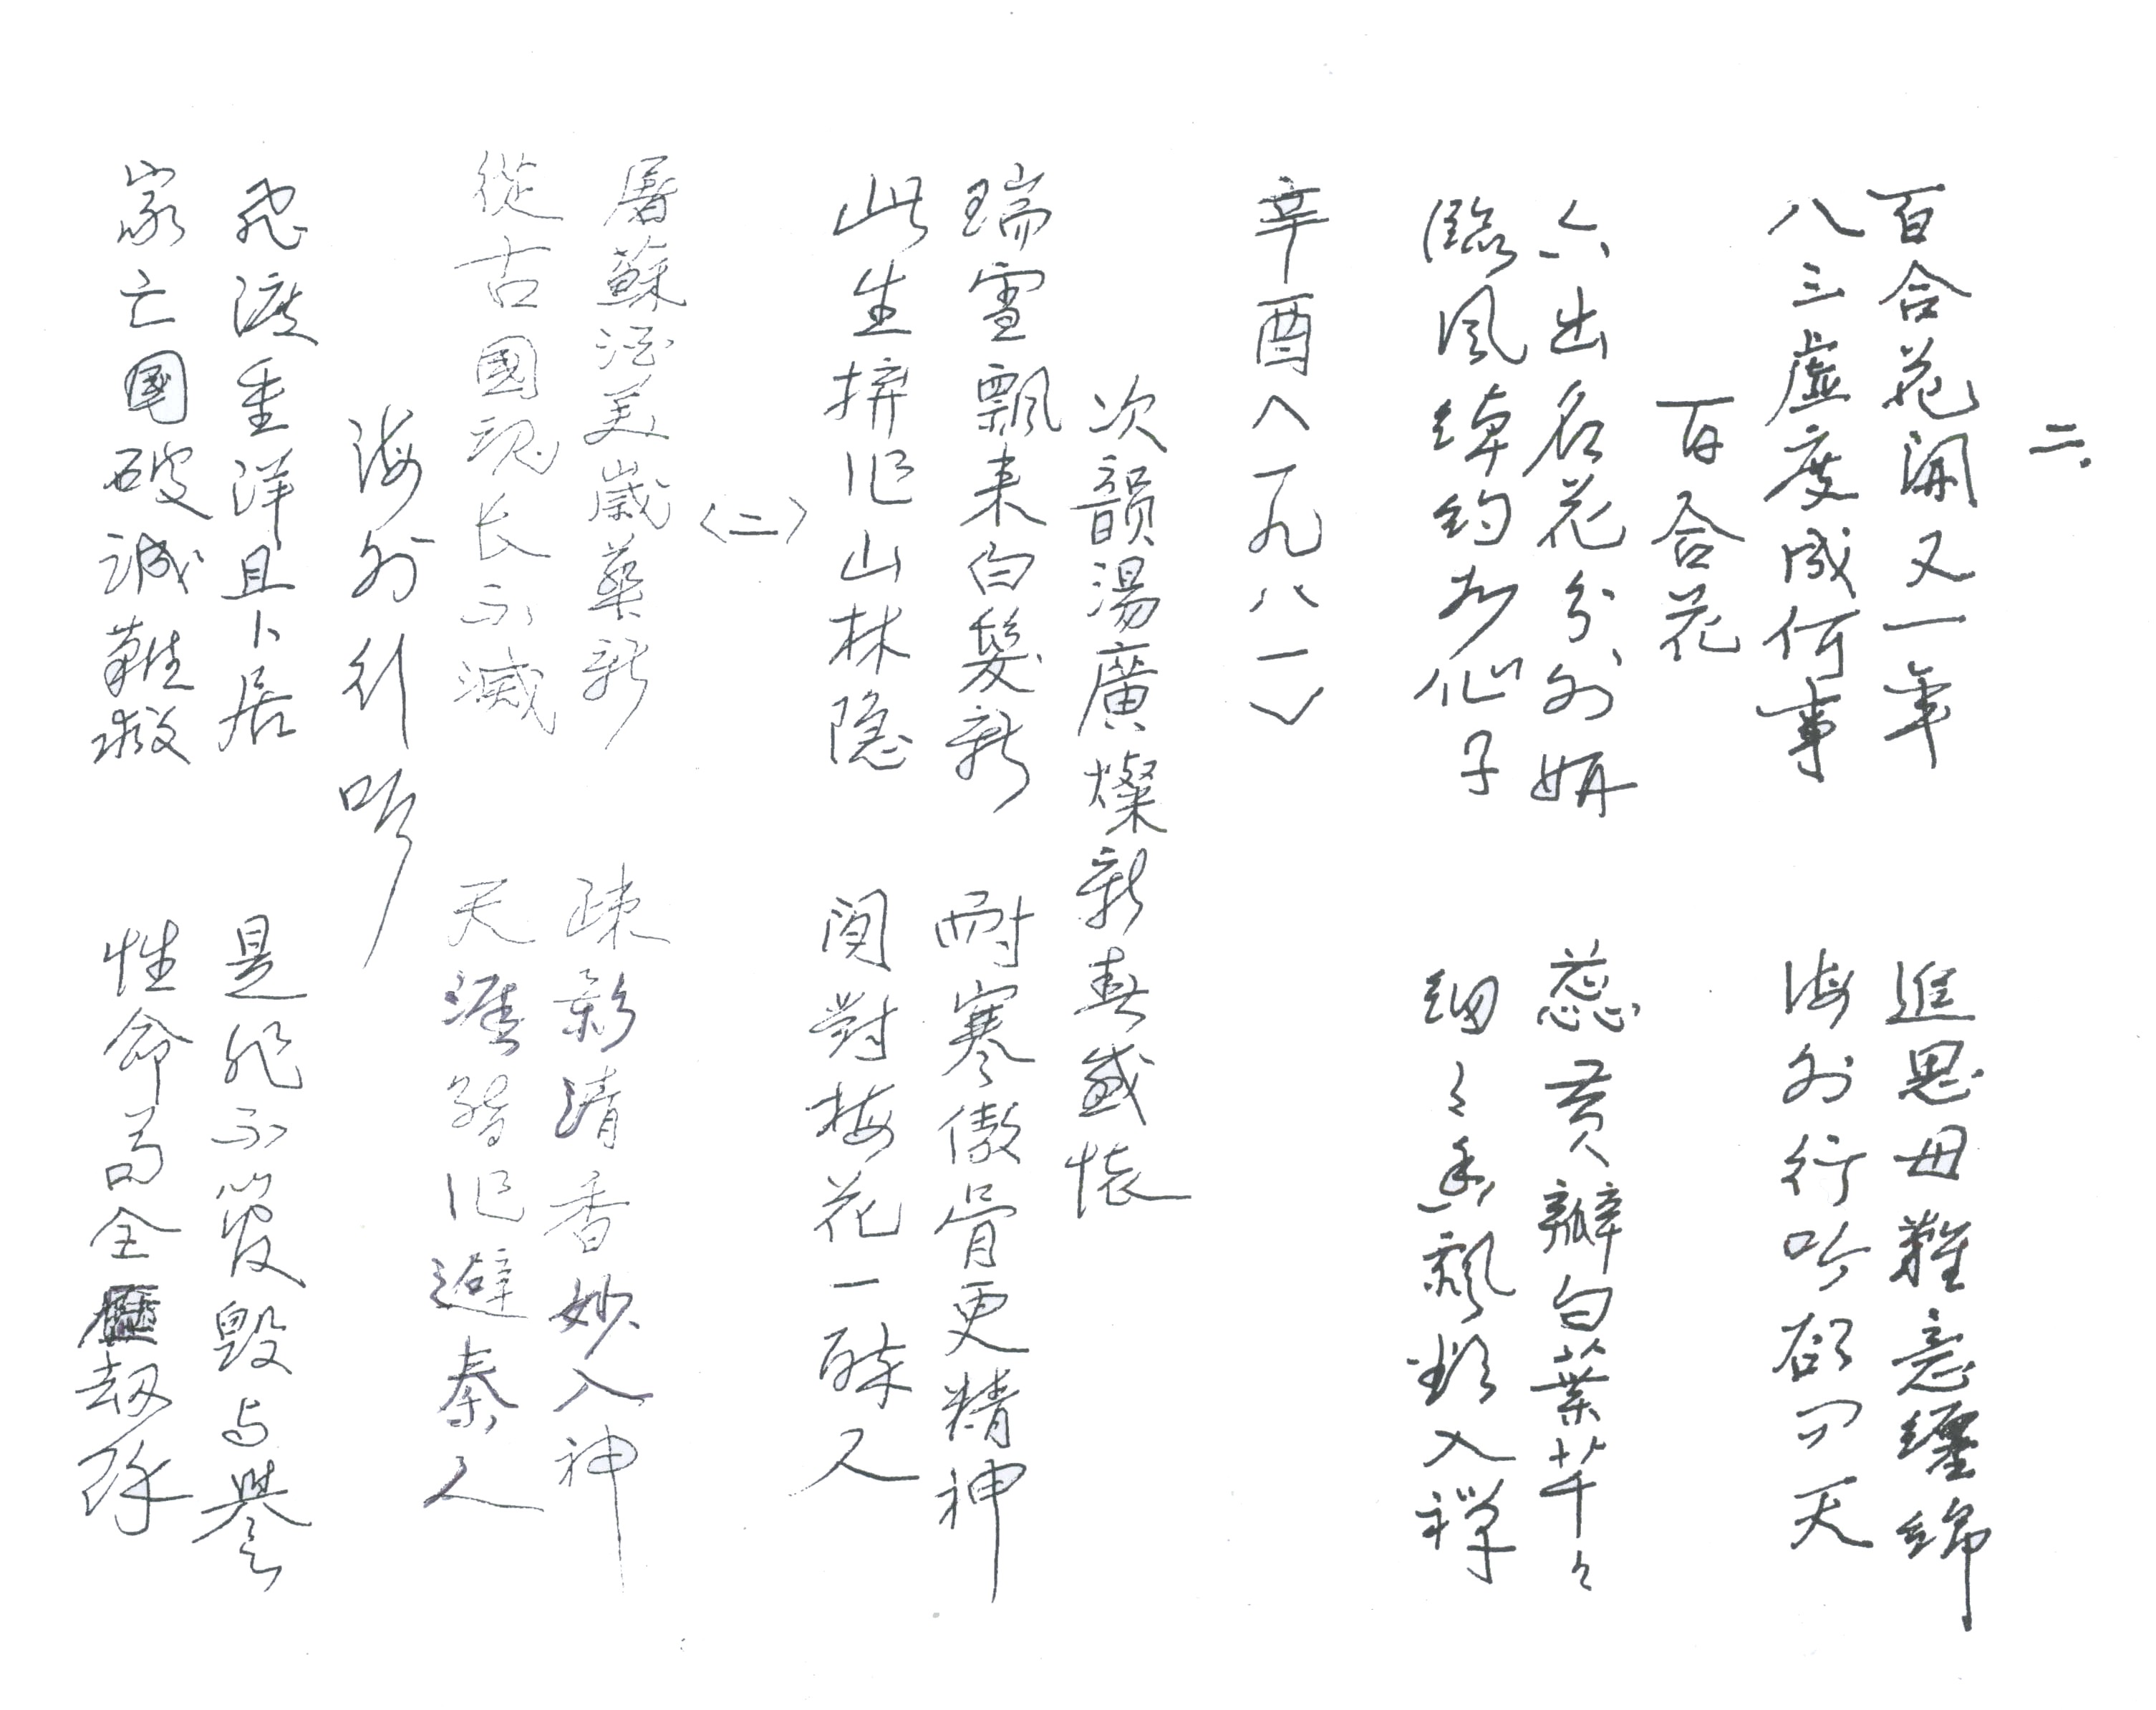 二.
百合花開又一年　進思母難意纏綿
八三虛度成何事　海外行吟欲問天
百合花
六出名花分外妍　蕊黄瓣白葉芊々
臨風綽約如仙子　細々香飄欲入禅
辛酉〈一九八一〉
次韻湯廣燦新春感懷
瑞雪飄来白髮新　耐寒傲骨更精神
此生拼作山林隐　閑對梅花一醉人
〈二〉
屠蘇酒美歲華新　疎影清香妙入神
從古國魂长不滅　天涯暂作避秦人
海外行吟
飛渡重洋且卜居　是非不管毁与譽
家亡國破誠難救　性命苟全歷劫餘